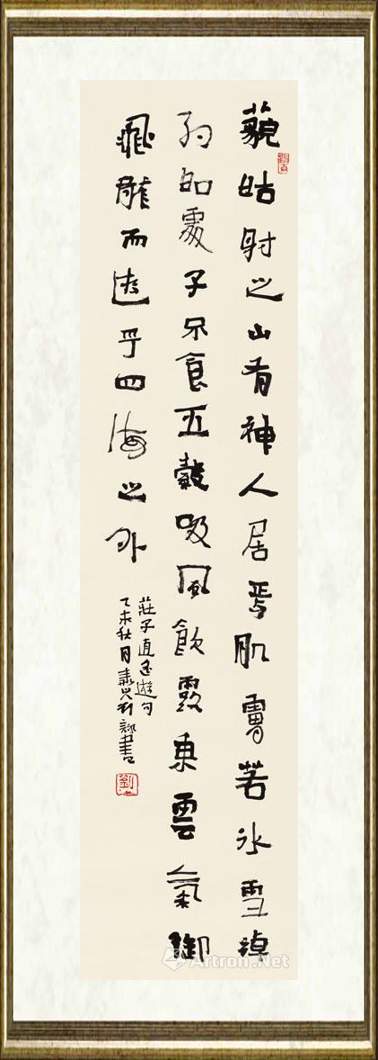 藐姑射之山有神人居焉肌膚若冰雪淖
約如處子不食五穀吸風飲露乘雲氣御
飛龍而遊乎四海之外
莊子逍遙遊句
乙未秋月
書
劉
Artron.Net